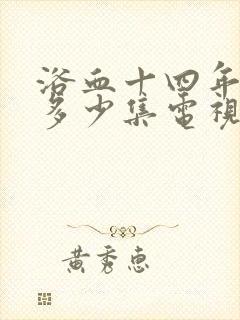 浴血十四年
多少集電視
黃秀惠